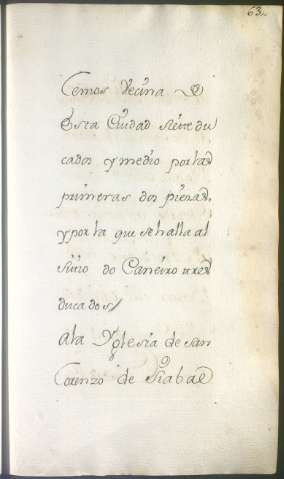 63.
Lemos Vecina D
Esta Ciudad siete du
cados y medio por las
primeras dos piezas,
y por la que se halla al
sitio do Caneiro tres
ducados/
ala Yglesia de San
Lorenzo de